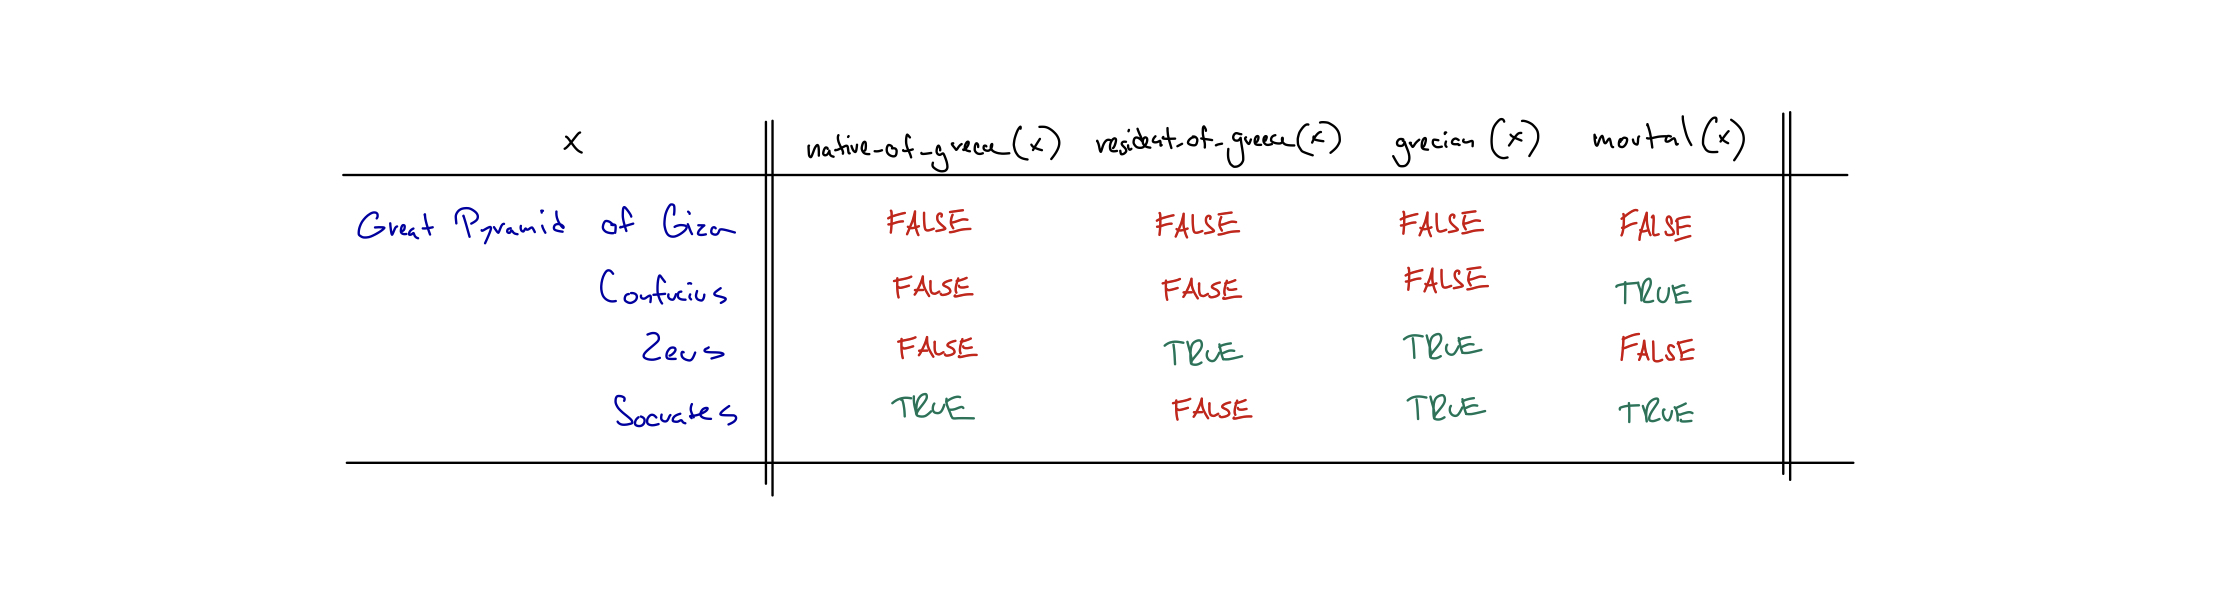 x native-of-greece(x) resident-of-greece(x) grecian (x) mortal (x)
Great Pyramid of Giza FALSE FALSE FALSE FALSE
Confucius FALSE FALSE FALSE TRUE
Zeus FALSE TRUE TRUE FALSE
Socrates TRUE FALSE TRUE TRUE